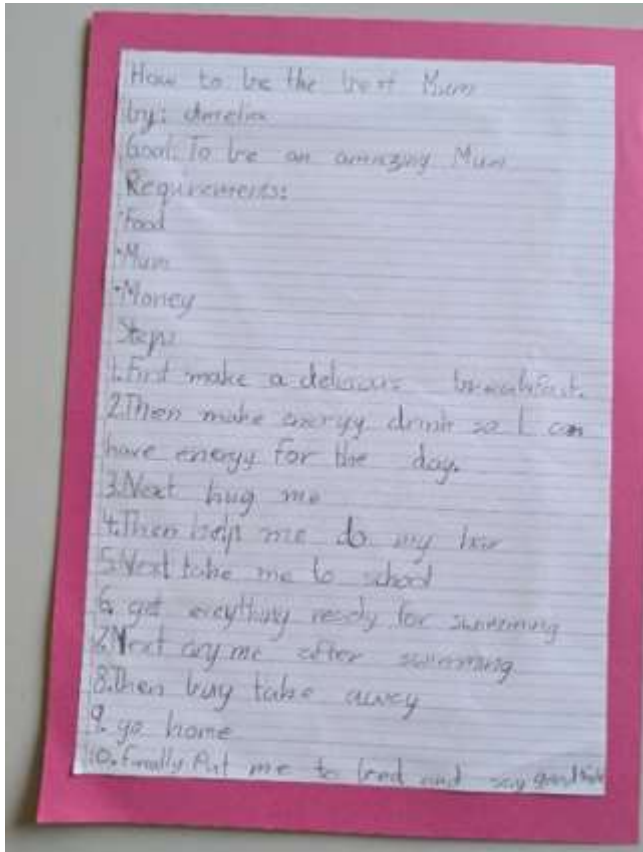 How to be the best Mum
by: Amelia
Goal: To be an amazing Mum
Requirements:
·Food
·Mum
·Money
Steps
1. First make a delicous breakfast.
2. Then make energy drink so I can
have energy for the day.
3. Next hug me
4. Then help me do my hair
5. Next take me to school
6. get everything ready for swimming
7. Next dry me after swimming
8. Then buy take away
9. go home
10. Finally Put me to bed and say